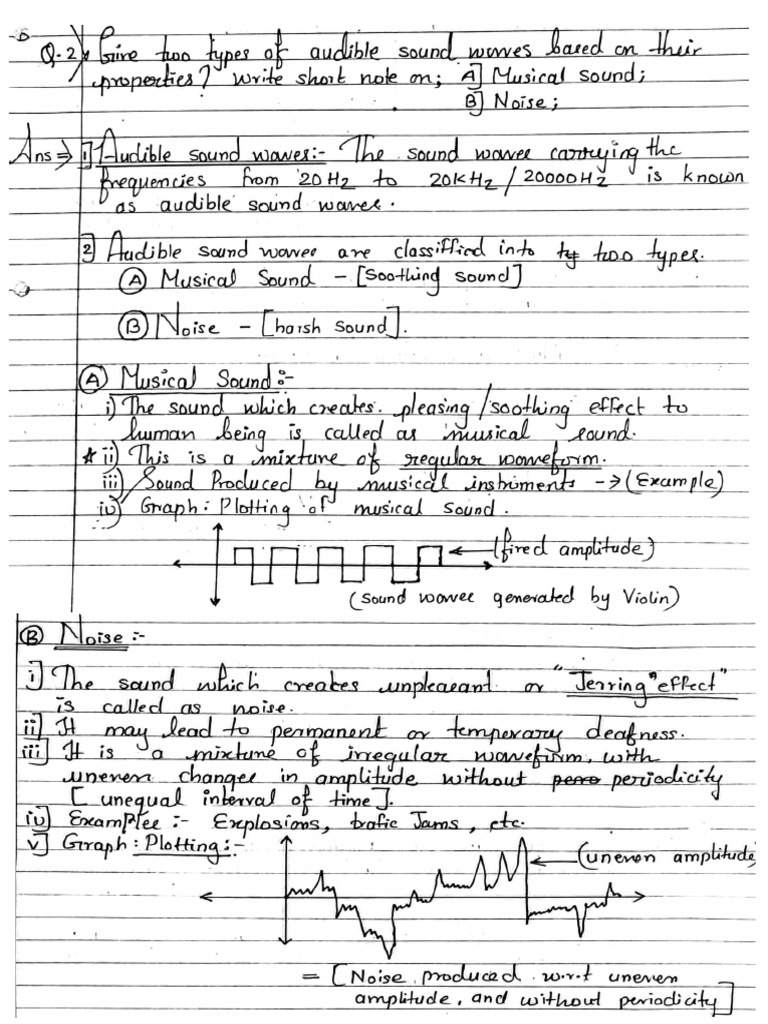 Q.2) Give two types of audible sound waves based on their
properties? Write short note on; A] Musical sound;
B] Noise;
Ans ⇒ 1] Audible sound waves:- The sound waves carrying the
frequencies from 20Hz to 20KHz/20000Hz is known
as audible sound waves.
2] Audible sound waves are classiffied into ty two types.
(A) Musical Sound - [Soothing sound]
(B) Noise - [harsh sound].
(A) Musical Sound:-
i) The sound which creates pleasing/soothing effect to
human being is called as musical sound.
* ii) This is a mixture of regular waveform.
iii) Sound Produced by musical instruments → (Example)
iv) Graph: Plotting of musical sound.
(fixed amplitude)
(sound waves generated by Violin)
(B) Noise:-
i] The sound which creates unpleasant or "Jerring" effect"
is called as noise.
ii] It may lead to permanent or temperary deafness.
iii] It is a mixture of irregular waveform, with
uneven changes in amplitude without periodicity
[unequal interval of time].
iv] Examples:- Explosions, trafic Jams, etc.
v] Graph: Plotting:-
(uneven amplitude)
= [Noise produced w.r.t uneven
amplitude, and without periodicity]